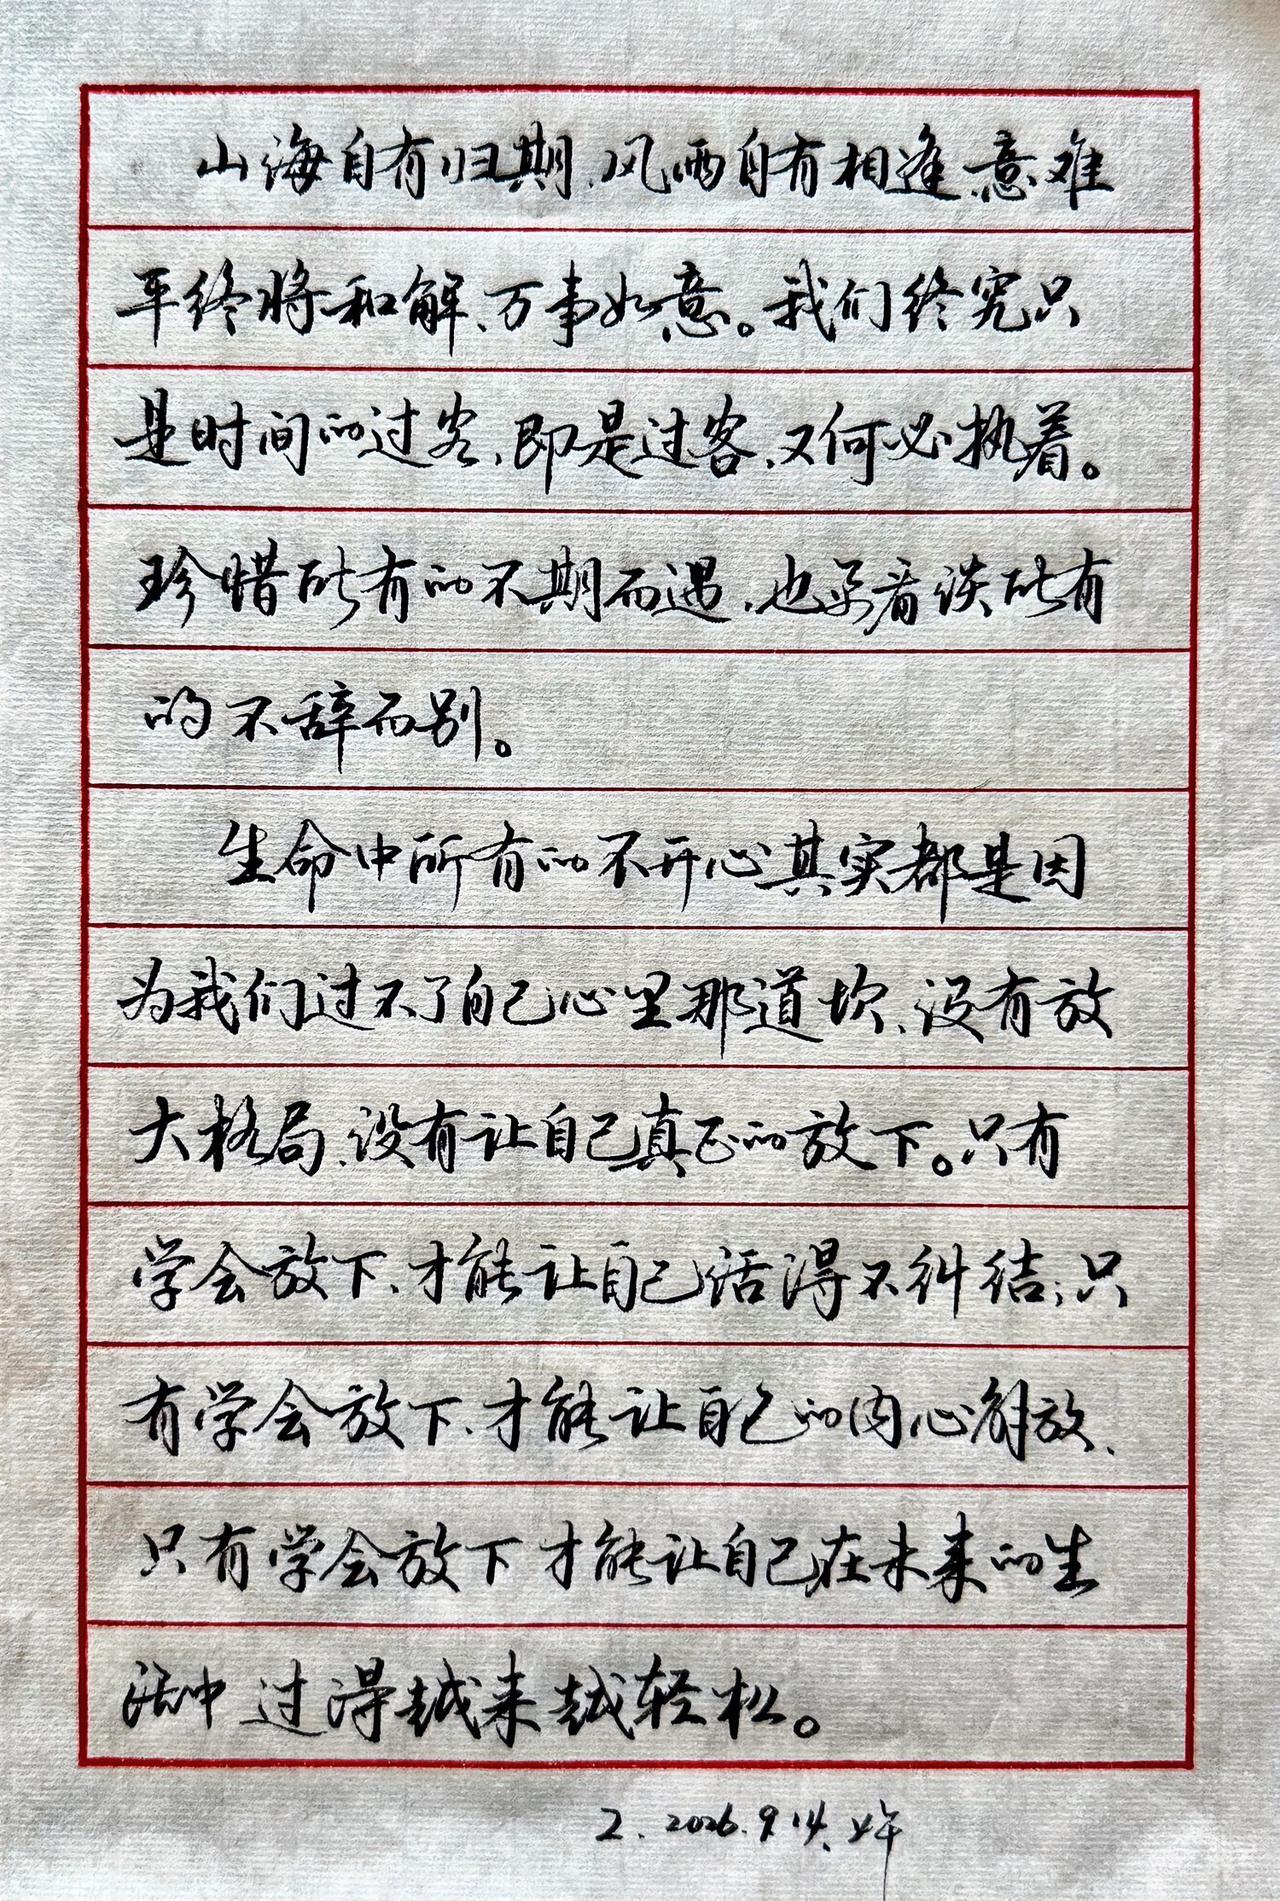 山海自有归期、风雨自有相逢、意难
平终将和解、万事如意。我们终究只
是时间的过客，即是过客、又何必执着。
珍惜所有的不期而遇、也要看淡所有
的不辞而别。
生命中所有的不开心其实都是因
为我们过不了自己心里那道坎、没有放
大格局、没有让自己真正的放下。只有
学会放下、才能让自己活得不纠结；只
有学会放下、才能让自己的内心解放、
只有学会放下 才能让自己在未来的生
活中过得越来越轻松。
2026.9.14、